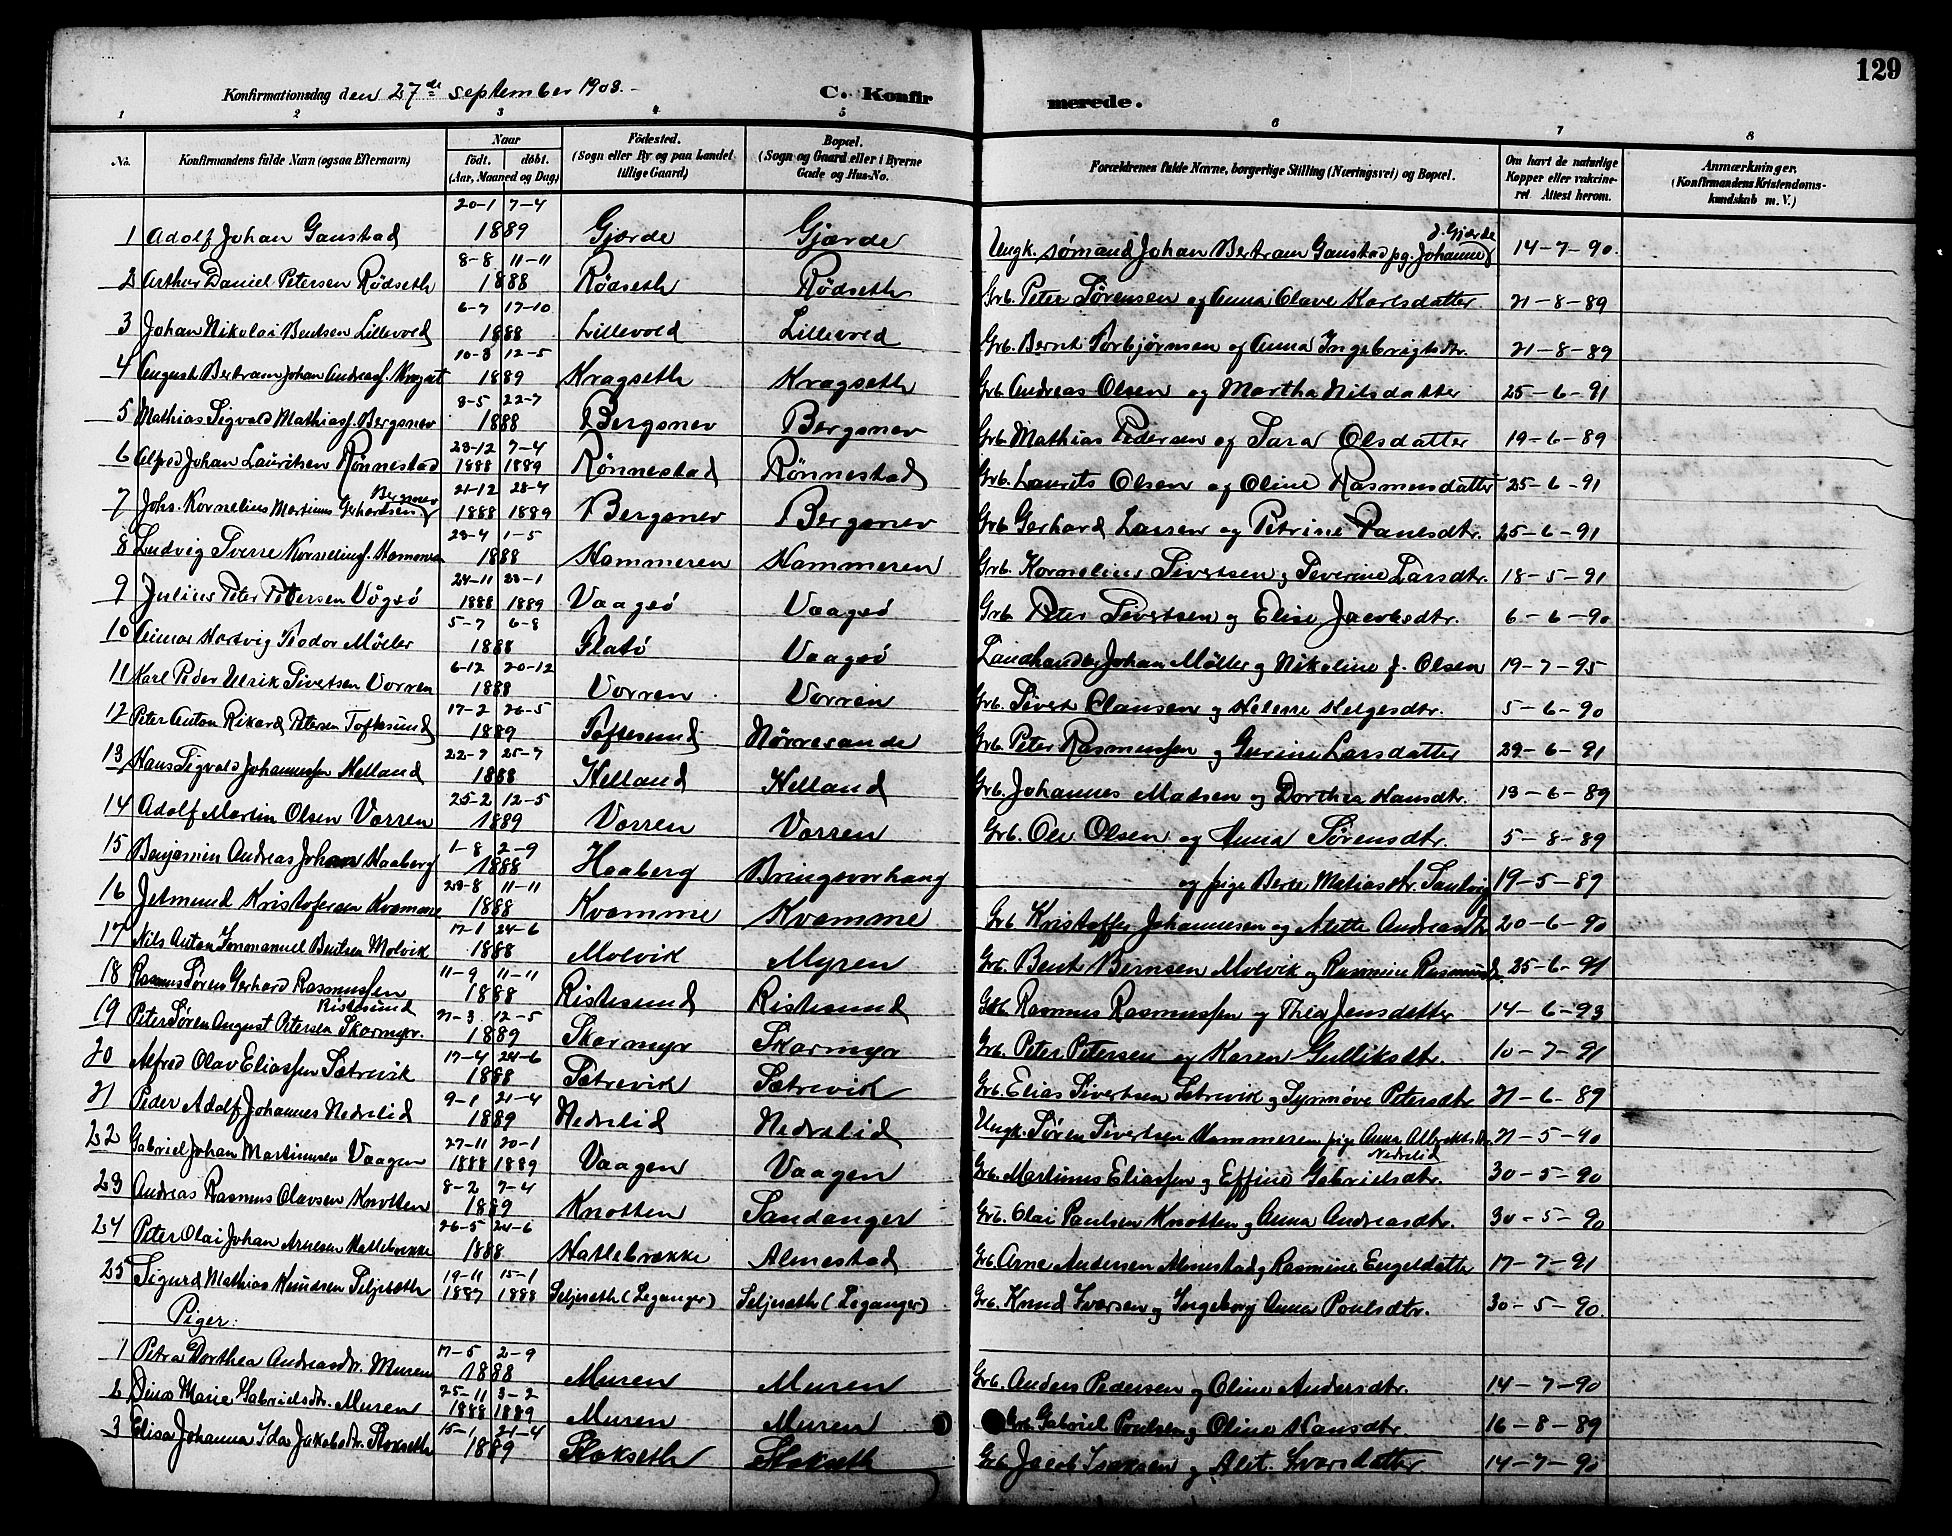 129
Konfirmationsdag den 27de september 1903.
C. Konfirmerede.
1 2 3 4 5 6 7 8
No. Konfirmandens fulde Navn (ogsaa Efternavn) Naar födt. döbt. (Aar, Maaned og Dag) Födested. (Sogn eller By og paa Landet tillige Gaard) Bopæl. (Sogn og Gaard eller i Byerne Gade og Hus-No. Forældrenes fulde Navne, borgerlige Stilling (Næringsvei) og Bopæl. Om havt de naturlige Kopper eller vakcineret Attest herom. Anmærkninger. (Konfirmandens Kristendomskundskab m. V.)
1 Adolf Johan Ganstad 20-1 7-4 1889 Gjærde Gjærde Ungk. sømand Johan Bertram Ganstad pg. Johanne J. Gjærde 14-7-90.
2 Arthur Daniel Petersen Rödseth 8-8 11-11 1888 Rödseth Rödseth Grb. Peter Sørensen og Anna Olave Karlsdatter 21-8-89
3 Johan Nikolai Bentsen Lillevold 6-7 17-10 1888 Lillevold Lillevold Grb. Bernt Torbjørnsen og Anna Ingebrigtsdtr. 21-8-89
4 August Bertram Johan Andreas. Kragset 10-8 12-5 1889 Kragseth Kragseth Grb. Andreas Olsen og Martha Nilsdatter 25-6-91
5 Mathias Sigvald Mathias. Bergsnev 8-5 22-7 1888 Bergsnev Bergsnev Grb. Mathias Pedersen og Sara Olsdatter 19-6-89
6 Alfred Johan Lauritsen Rönnestad 23-12 7-4 1888 1889 Rönnestad Rönnestad Grb. Laurits Olsen og Oline Rasmusdatter 25-6-91
7 Johs. Kornelius Martinus Gerhardsen Bergsnev 21-12 28-4 1888 1889 Bergsnev Bergsnev Grb. Gerhard Larsen og Petrine Paulsdtr. 25-6-91
8 Ludvig Sverre Korneliusf. Hammeren 23-4 1-5 1888 Hammeren Hammeren Grb. Kornelius Sivertsen og Severine Larsdtr. 18-5-91
9 Julius Peter Petersen Vögsö 24-11 23-1 1888 1889 Vaagsö Vaagsö Grb. Peter Sivertsen og Elise Jacobsdtr. 6-6-90
10 Einar Hartvig Teodor Möller 5-7 6-8 1888 Flatö Vaagsö Landhandler Johan Möller og Nikoline f. Olsen 19-7-95
11 Karl Peder Ulrik Sivertsen Vorren 6-12 20-12 1888 Vorren Vorren Grb. Sivert Clausen og Helene Helgesdtr. 5-6-90
12 Peter Anton Rikard Petersen Toftesund 17-2 26-5 1889 Toftesund Nörresande Grb. Peter Rasmussen og Gurine Larsdatter 29-6-91
13 Hans Sigvald Johannessen Helland 22-7 25-7 1888 Helland Helland Grb. Johannes Madsen og Dorthea Hansdtr. 13-6-89
14 Adolf Martin Olsen Vorren 25-2 12-5 1889 Vorren Vorren Grb. Ole Olsen og Anna Sörensdtr. 5-8-89
15 Benjamin Andreas Johan Haaberg 1-8 2-9 1888 Haaberg Bringsvorhaug og pige Berte Matiasdtr. Sandvig 19-5-89
16 Jetmund Kristofersen Kvamme 23-8 11-11 1888 Kvamme Kvamme Grb. Kristoffer Johannesen og Alette Andreasdtr 20-6-90
17 Nils Anton Immanuel Bentsen Molvik 17-1 24-6 1888 Molvik Myren Grb. Bent Berntsen Molvik og Rasmine Rasmusdtr. 25-6-91
18 Rasmus Sören Gerhard Rasmussen Ristesund 11-9 11-11 1888 Ristesund Ristesund Grb. Rasmus Rasmussen og Thea Jensdatter 14-6-93
19 Peter Sören August Petersen Skarmyr. 21-3. 12-5 1889 Skarmyr Skarmyr Grb. Peter Petersen og Karen Gulliksdtr. 10-7-91
20 Alfred Olav Eliassen Sætrevik 17-4 24-6 1888 Sætrevik Sætrevik Grb. Elias Sivertsen Sætrevik og Synnøve Petersdtr 21-6-89
21 Peder Adolf Johannes Nedrelid 9-1 21-4 1889 Nedrelid Nedrelid Ungk. Sören Sivertsen Hammeren pige Anna Albrektsdtr. Nedrelid 21-5-90
22 Gabriel Johan Martinusen Vaagen 27-11 20-1 1888 1889 Vaagen Vaagen Grb. Martinus Eliassen og Effine Gabrielsdtr. 30-5-90
23 Andreas Rasmus Olavsen Knotten 8-2 7-4 1889 Knotten Sandanger Grb. Olai Paulsen Knotten og Anna Andreasdtr. 30-5-90
24 Peter Olai Johan Arnesen Hatlebrække 26-5 24-6 1888 Hatlebrække Almestad Grb. Arne Andersen Almestad og Rasmine Engeldatter 17-7-91
25 Sigurd Mathias Knudsen Seljeseth 19-11 15-1 1887 1888 Seljeseth (Leganger) Seljeseth (Leganger) Grb. Knud Ivarsen og Ingeborg Anna Poulsdtr. 30-5-90.
Piger:
1 Petra Dorthea Andreasdtr. Muren 17-5 2-9 1888 Muren Muren Grb. Anders Pedersen og Oline Andersdtr. 14-7-90
2 Jina Marie Gabrielsdtr. Muren 25-11 3-2 1888 1889 Muren Muren Grb. Gabriel Poulsen og Oline Hansdtr. 16-8-89
3 Elisa Johanna Ida Jakobsdtr. Stokseth 15-1 21-4 1889 Stokseth Stokseth Grb. Jacob Isaksen og Alet. Ivarsdatter. 14-7-90